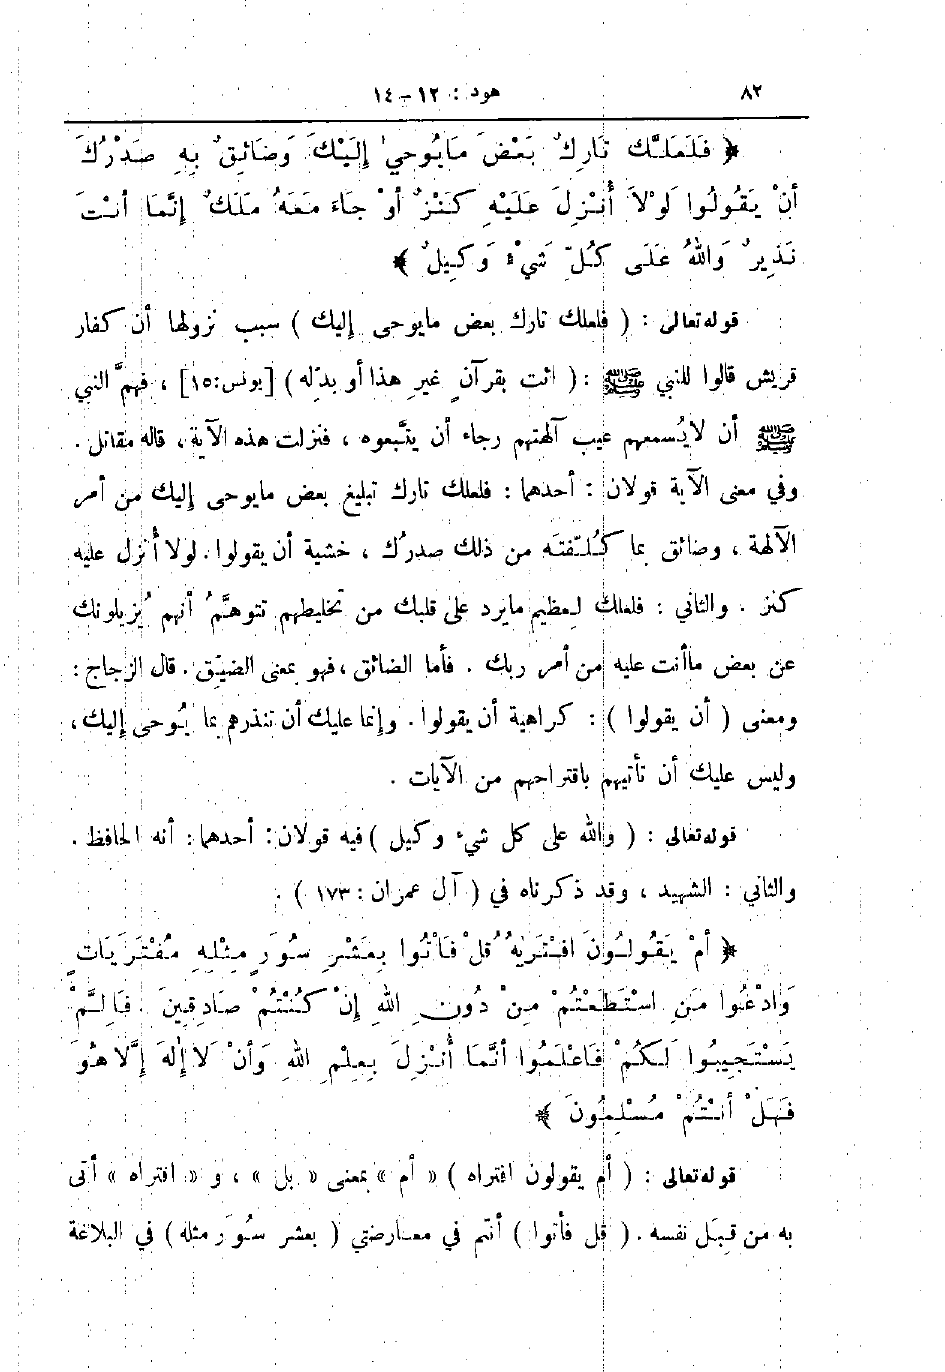 ٨٢ هود : ١٢ – ١٤
﴿ فَلَعَلَّكَ تَارِكٌ بَعْضَ مَايُوحىٰ إِلَيْكَ وَضَائِقٌ بِهِ صَدْرُكَ
أنْ يَقُولُوا لَوْلاَ أُنْزِلَ عَلَيْهِ كَنْزٌ أوْ جَاءَ مَعَهُ مَلَكٌ إنَّمَا أنْتَ
نَذِيرٌ وَاللهُ عَلَى كُلِّ شَيْءٍ وَكِيلٌ ﴾
قوله تعالى : ( فلعلك تارك بعض مايوحى إليك ) سبب نزولها أن كفار
قريش قالوا للنبي ﷺ : ( ائت بقرآنٍ غيرِ هذا أو بدّله ) [يونس:١٥] ، فهمَّ النبي
ﷺ أن لايُسمعهم عيب آلهتهم رجاء أن يتَّبعوه ، فنزلت هذه الآية ، قاله مقاتل .
وفي معنى الآية قولان : أحدهما : فلعلك تارك تبليغ بعض مايوحى إليك من أمر
الآلهة ، وضائق بما كُلِّفتَه من ذلك صدرُك ، خشية أن يقولوا . لولا أُنزل عليه
كنز . والثاني : فلعلك لِعظيم مايرد على قلبك من تخليطهم تتوهَّمُ أنهم يُزيلونك
عن بعض ماأنت عليه من أمر ربك . فأما الضائق ، فهو بمعنى الضيّق . قال الزجاج :
ومعنى ( أن يقولوا ) : كراهية أن يقولوا . وإنما عليك أن تنذرهم بما يُوحى إليك ،
وليس عليك أن تأتيهم باقتراحهم من الآيات .
قوله تعالى : ( والله على كل شيء وكيل ) فيه قولان : أحدهما : أنه الحافظ .
والثاني : الشهيد ، وقد ذكرناه في ( آل عمران : ١٧٣ ) .
﴿ أمْ يَقُولُونَ افْتَرَيٰهُ قُلْ فَأْتُوا بِعَشْرِ سُوَرٍ مِثْلِهِ مُفْتَرَيَاتٍ
وَادْعُوا مَنِ اسْتَطَعْتُمْ مِنْ دُونِ اللهِ إنْ كُنْتُمْ صَادِقِينَ . فَإلَّمْ
يَسْتَجِيبُوا لَكُمْ فَاعْلَمُوا أنَّمَا أُنْزِلَ بِعِلْمِ اللهِ وَأنْ لاَ إلٰهَ إلَّا هُوَ
فَهَلْ أنْتُمْ مُسْلِمُونَ ﴾
قوله تعالى : ( أم يقولون افتراه ) « أم » بمعنى « بل » ، و « افتراه » أتى
به من قِبَل نفسه . ( قل فأتوا ) أنتم في معارضتي ( بعشر سُوَر مثله ) في البلاغة